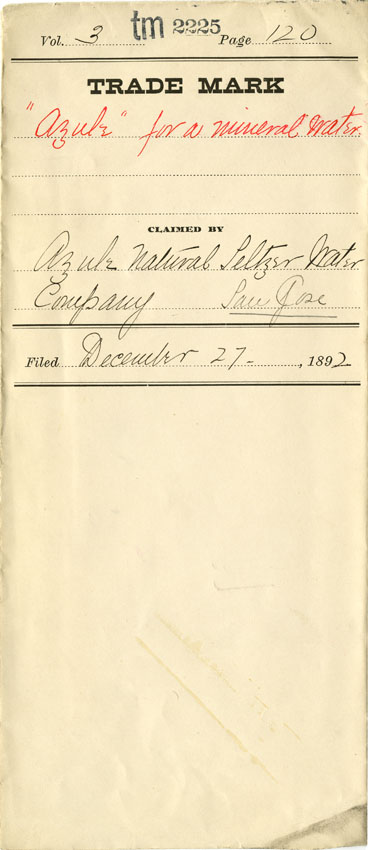 Vol. 3 tm 2225 Page 120
TRADE MARK
"Azule" for a mineral water.
CLAIMED BY
Azule Natural Seltzer Water
Company San Jose
Filed December 27 - , 1892